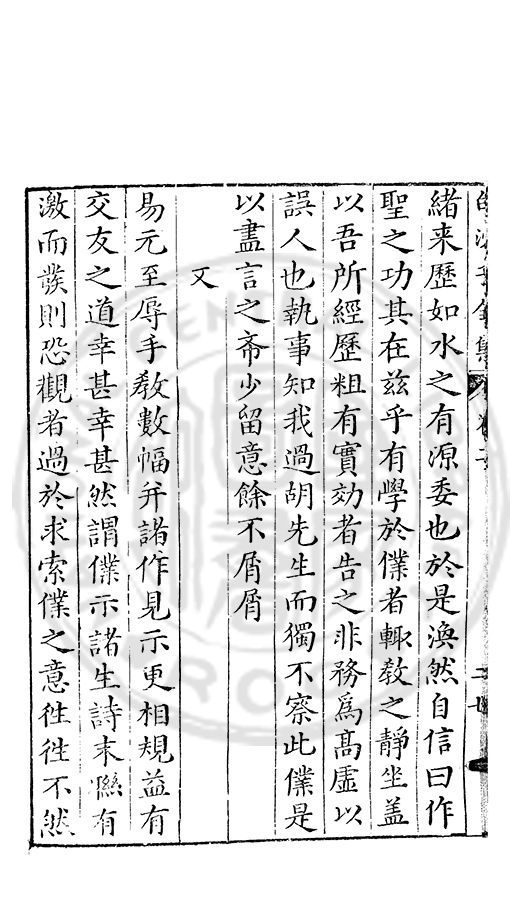 緒来歷如水之有源委也於是渙然自信曰作
聖之功其在兹乎有學於僕者輒教之靜坐盖
以吾所經歷粗有實効者告之非務爲髙虚以
誤人也執事知我過胡先生而獨不察此僕是
以盡言之希少留意餘不屑屑
又
易元至辱手教數幅并諸作見示更相規益有
交友之道幸甚幸甚然謂僕示諸生詩末聯有
激而發則恐觀者過於求索僕之意徃徃不然